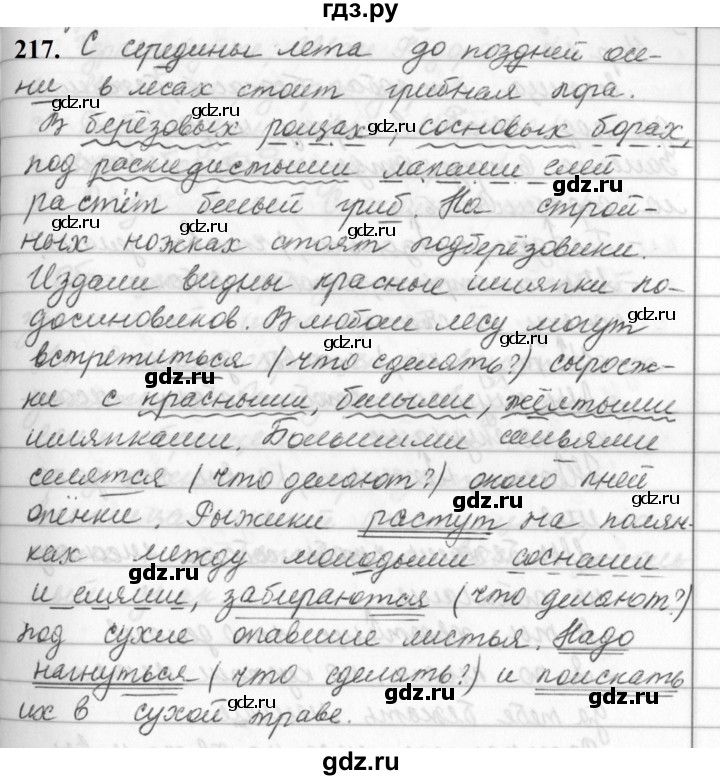 гдз.ру
217. С середины лета до поздней осе-
ни в лесах стоит грибная пора.
В берёзовых рощах, сосновых борах,
под раскидистыми лапами елей
растёт белый гриб. На строй-
ных ножках стоят подберёзовики.
Издали видны красные шляпки по-
досиновиков. В любом лесу могут
встретиться (что сделать?) сыроеж-
ки с красными, белыми, жёлтыми
шляпками. Большими семьями
селятся (что делают?) около пней
опёнки. Рыжики растут на полян-
ках между молодыми соснами
и елями, забираются (что делают?)
под сухие опавшие листья. Надо
нагнуться (что сделать?) и поискать
их в сухой траве.